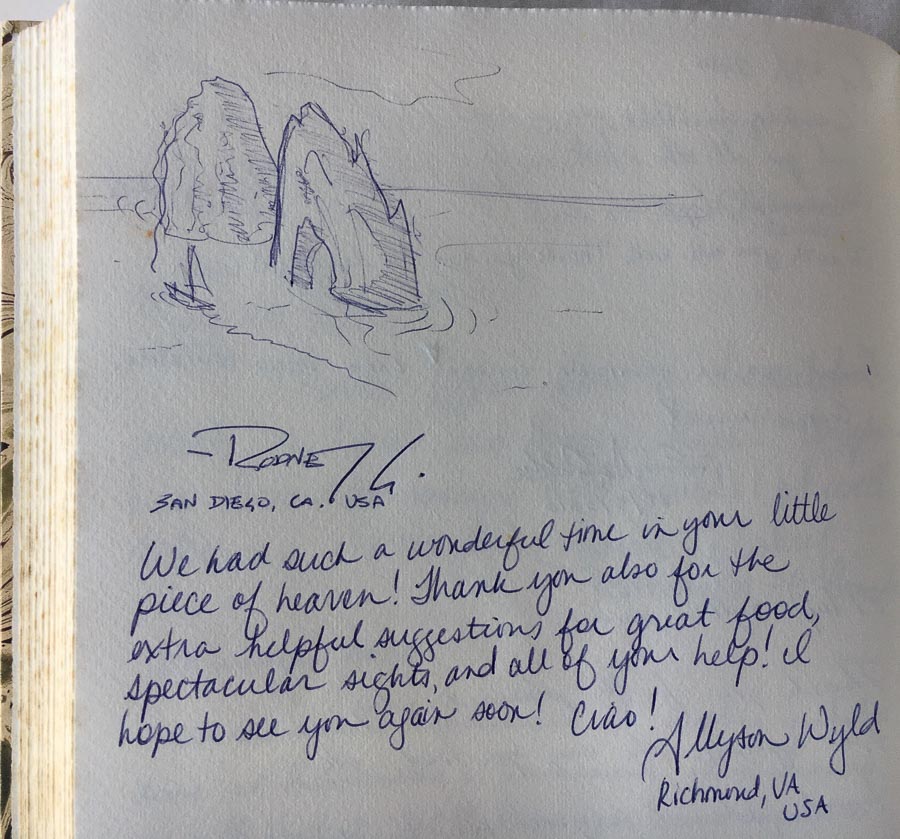 - RODNEY G.
SAN DIEGO, CA. USA
We had such a wonderful time in your little
piece of heaven! Thank you also for the
extra helpful suggestions for great food,
spectacular sights, and all of your help! I
hope to see you again soon! Ciao!
Allyson Wyld
Richmond, VA
USA